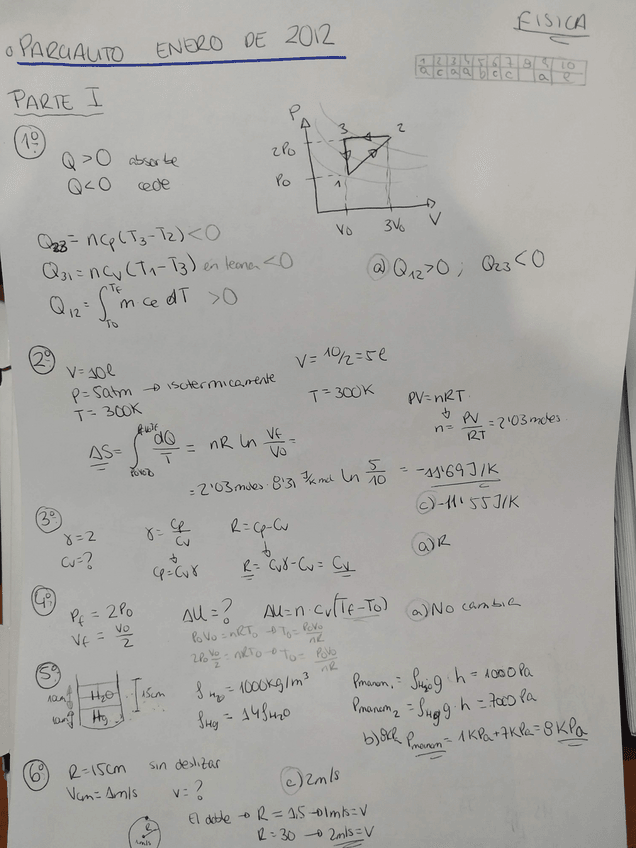 FISICA
PARCIALITO ENERO DE 2012
1 2 3 4 5 6 7 8 9 10
a c a a b c c a e
PARTE I
1º
Q > 0 absorbe
Q < 0 cede
P
3 2
2P0
P0
1
V0 3V0 V
Q23 = n Cp (T3 - T2) < 0
Q31 = n Cv (T1 - T3) < 0
Q12 = ∫ m ce dT > 0
Tf
T0
a) Q12 > 0 ; Q23 < 0
2º
V = 10l
P = 5atm → isotermicamente
T = 300K
V = 10/2 = 5l
T = 300K
PV = nRT
n = PV/RT = 2'03 moles
ΔS = ∫ dQ/T = nR ln Vf/V0 =
= 2'03 moles · 8'31 J/K mol ln 5/10 = -11'69 J/K
c) -11'55 J/K
3º
γ = 2
Cv = ?
γ = Cp/Cv
Cp = Cv γ
R = Cp - Cv
R = Cv γ - Cv = Cv
a) R
4º
Pf = 2P0
Vf = V0/2
ΔU = ? ΔU = n · Cv (Tf - T0)
P0V0 = nRT0 → T0 = P0V0/nR
2P0 V0/2 = nRT0 → T0 = P0V0/nR
a) No cambia
5º
10cm
10cm
H2O
Hg
15cm
ρH2O = 1000 kg/m³
ρHg = 14 ρH2O
Pmanom1 = ρH2O g · h = 1000 Pa
Pmanom2 = ρHg g · h = 7000 Pa
b) 8KPa Pmanom = 1KPa + 7KPa = 8KPa
6º
R = 15cm sin deslizar
Vcm = 1m/s v = ?
c) 2m/s
R
1m/s
El doble → R = 15 → 1m/s = V
R = 30 → 2m/s = V